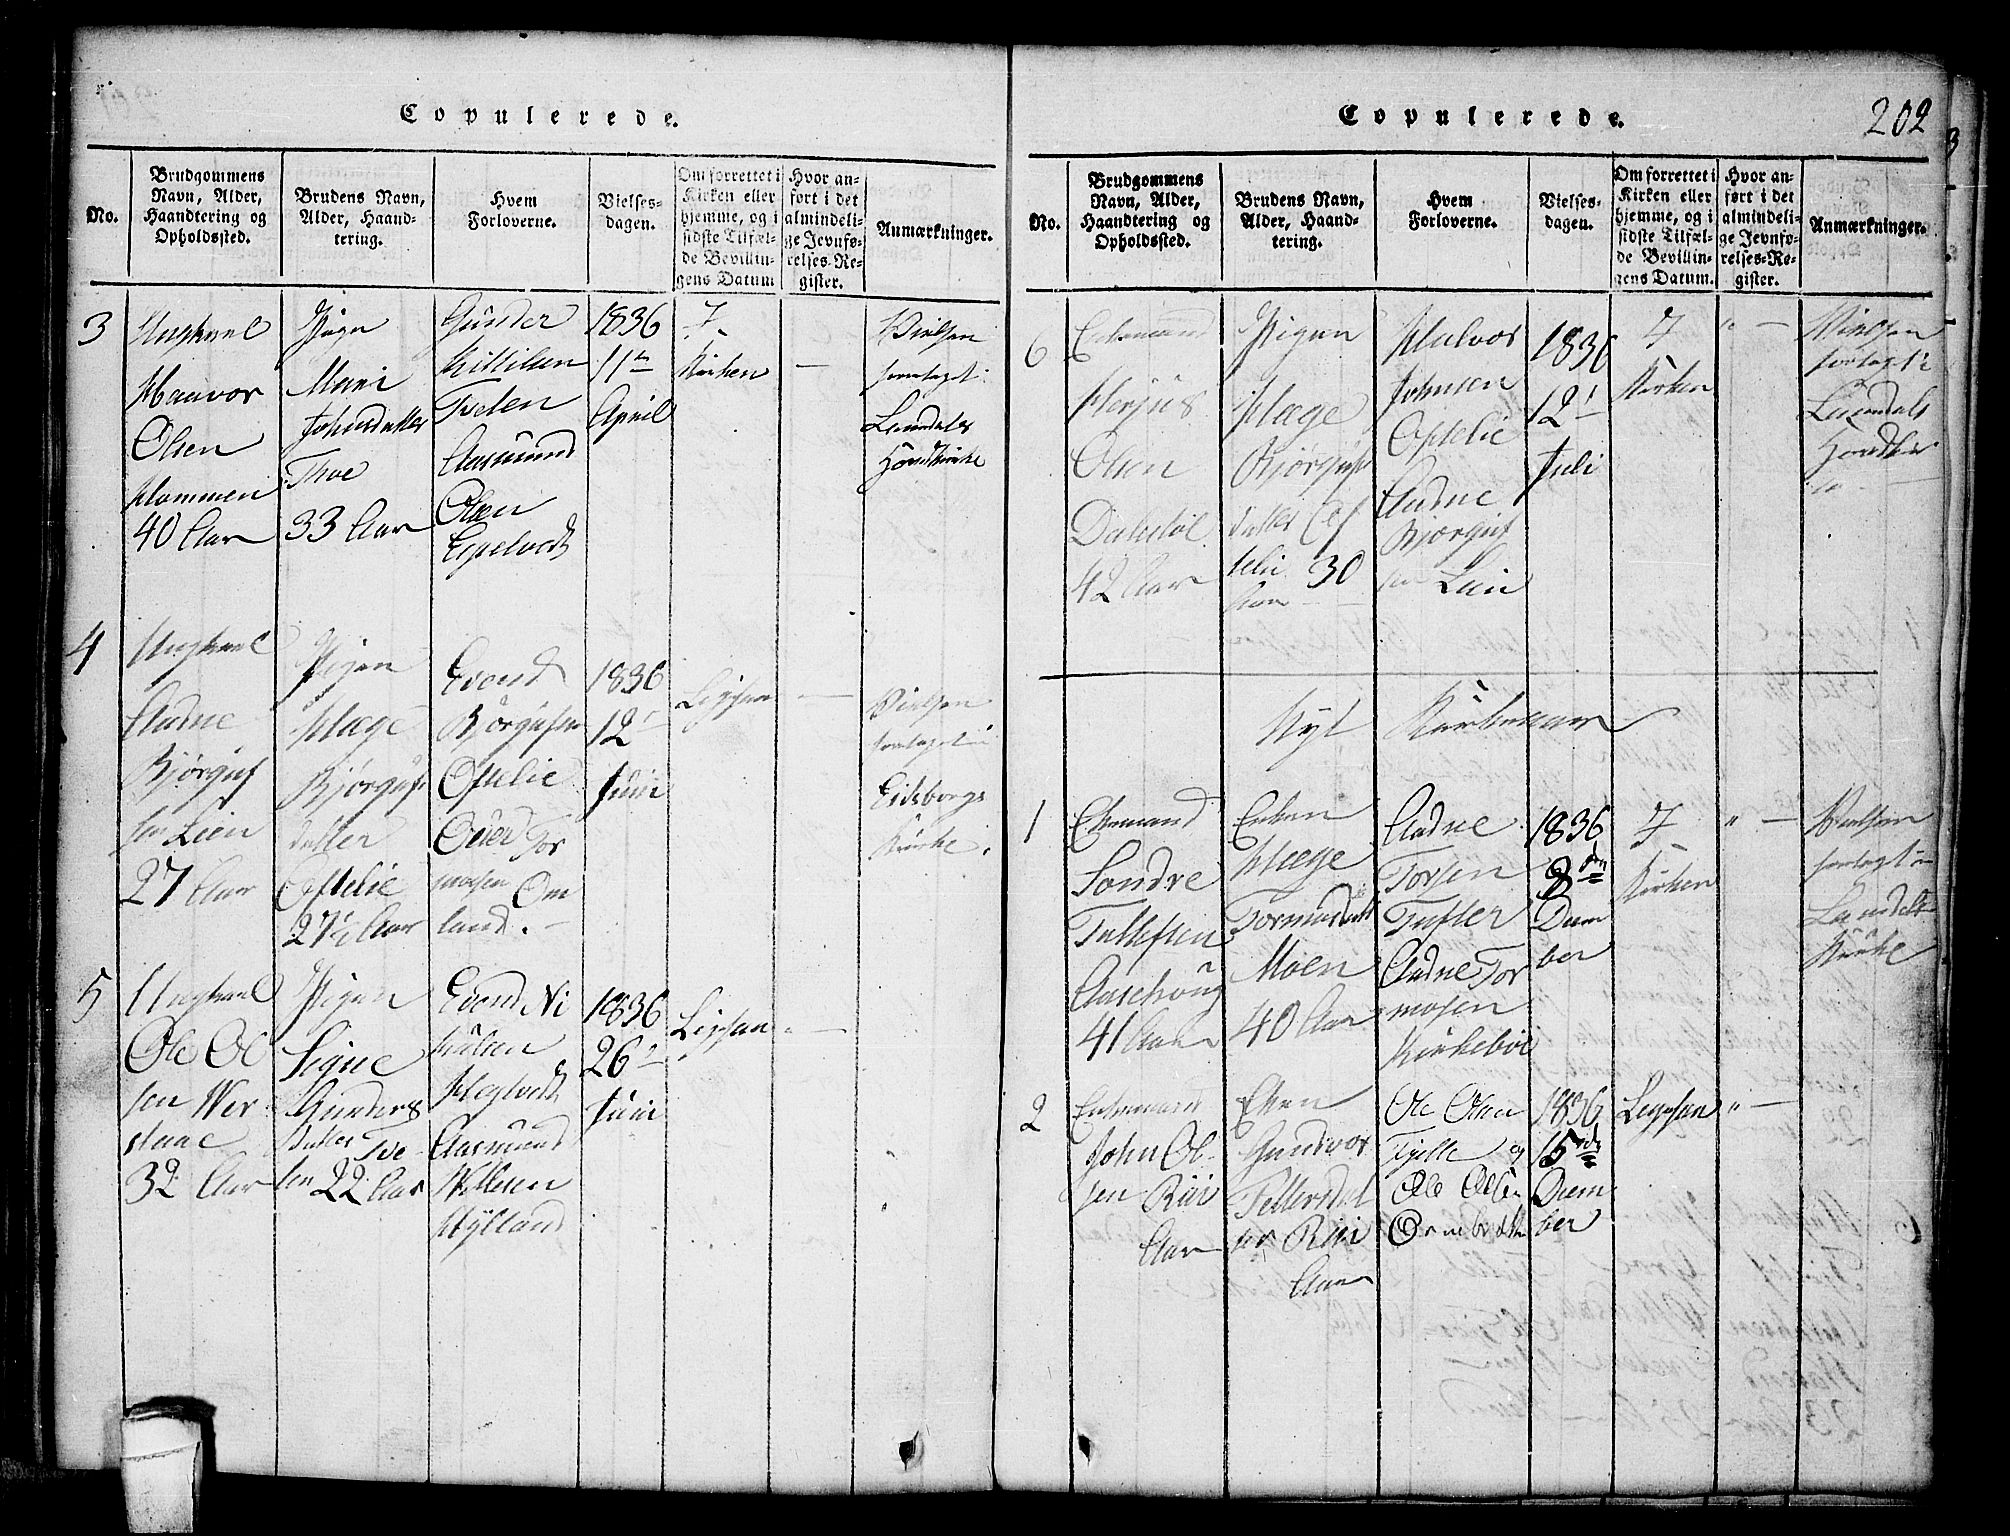 Copulerede.
No.
Brudgommens
Navn, Alder,
Haandtering og
Opholdssted.
Brudens Navn,
Alder, Haand-
tering.
Hvem
Forloverne.
Vielses-
dagen.
Om forrettet i
Kirken eller
hjemme, og i
sidste Tilfæl-
de Bevillin-
gens Datum
Hvor an-
ført i det
almindeli-
ge Jevnfø-
relses-Re-
gister.
Anmærkninger.
3
Ungkarl
Haavor
Olsen
Hommen
40 Aar
Pigen
Mari
Johnsdatter
Thoe
33 Aar
Gunder
Kittilsen
Tveten
Aasmund
Olsen
1836
11te
April
I
Kirken
—
Vielsen
foretaget i
Laurdals
Hovedkirke
4
Ungkarl
Aadne
Bjørguf
sen Leen
27 Aar
Pigen
Hæge
Bjørgufs
datter
Oftelie
27½ Aar
Evend
Bjørgufsen
Oftelie
Over Tor
mosen Om
land. —
1836
12te
Juni
Ligesaa
—
Vielsen
foretaget i
Eidsborgs
Kirke.
5
Ungkarl
Ole Ol
sen Wer
staae
32 Aar
Pigen
Signe
Gunders
datter Tve-
ten 22 Aar
Evend Ni
kulsen
Hegtvedt
Aasmund
Nilsen
Hylland
1836
26de
Juni
Ligesaa
—
Copulerede.
202
No.
Brudgommens
Navn, Alder,
Haandtering og
Opholdssted.
Brudens Navn,
Alder, Haand-
tering.
Hvem
Forloverne.
Vielses-
dagen.
Om forrettet i
Kirken eller
hjemme, og i
sidste Tilfæl-
de Bevillin-
gens Datum.
Hvor an-
ført i det
almindeli-
ge Jevnfø-
relses-Re-
gister.
Anmærkninger.
6
Enkemand
Herjus
Olsen
Dalestøl
42 Aar
Pigen
Hæge
Bjørgufs
datter Of
telie 30
Aar —
Halvor
Johnsen
Oftelie
Aadne
Bjørguf
sen Leen
1836
12te
Juli
I
Kirken
" —
Vielsen
foretaget i
Laurdals
Hovedkir
ke —
Nyt Kirkeaar
1
Ekemand
Sondre
Tallefsen
Aaschoug
41 Aar
Enken
Hæge
Tormosdatt
Moen
40 Aar
Aadne
Torsen
Tufter
Aadne Tor
mosen
Kirkebøe
1836
8de
Decem
ber
I
Kirken
" —
Vielsen
foretaget i
Laurdals
Kirke
2
Enkemand
John Ol-
sen Rui
Aar
Eken
Gundvor
Tellevsdat
ter Rui
Aar
Ole Olsen
Fjelle og
Ole Olsen
1836
15de
Decem
ber
Ligesaa
" —